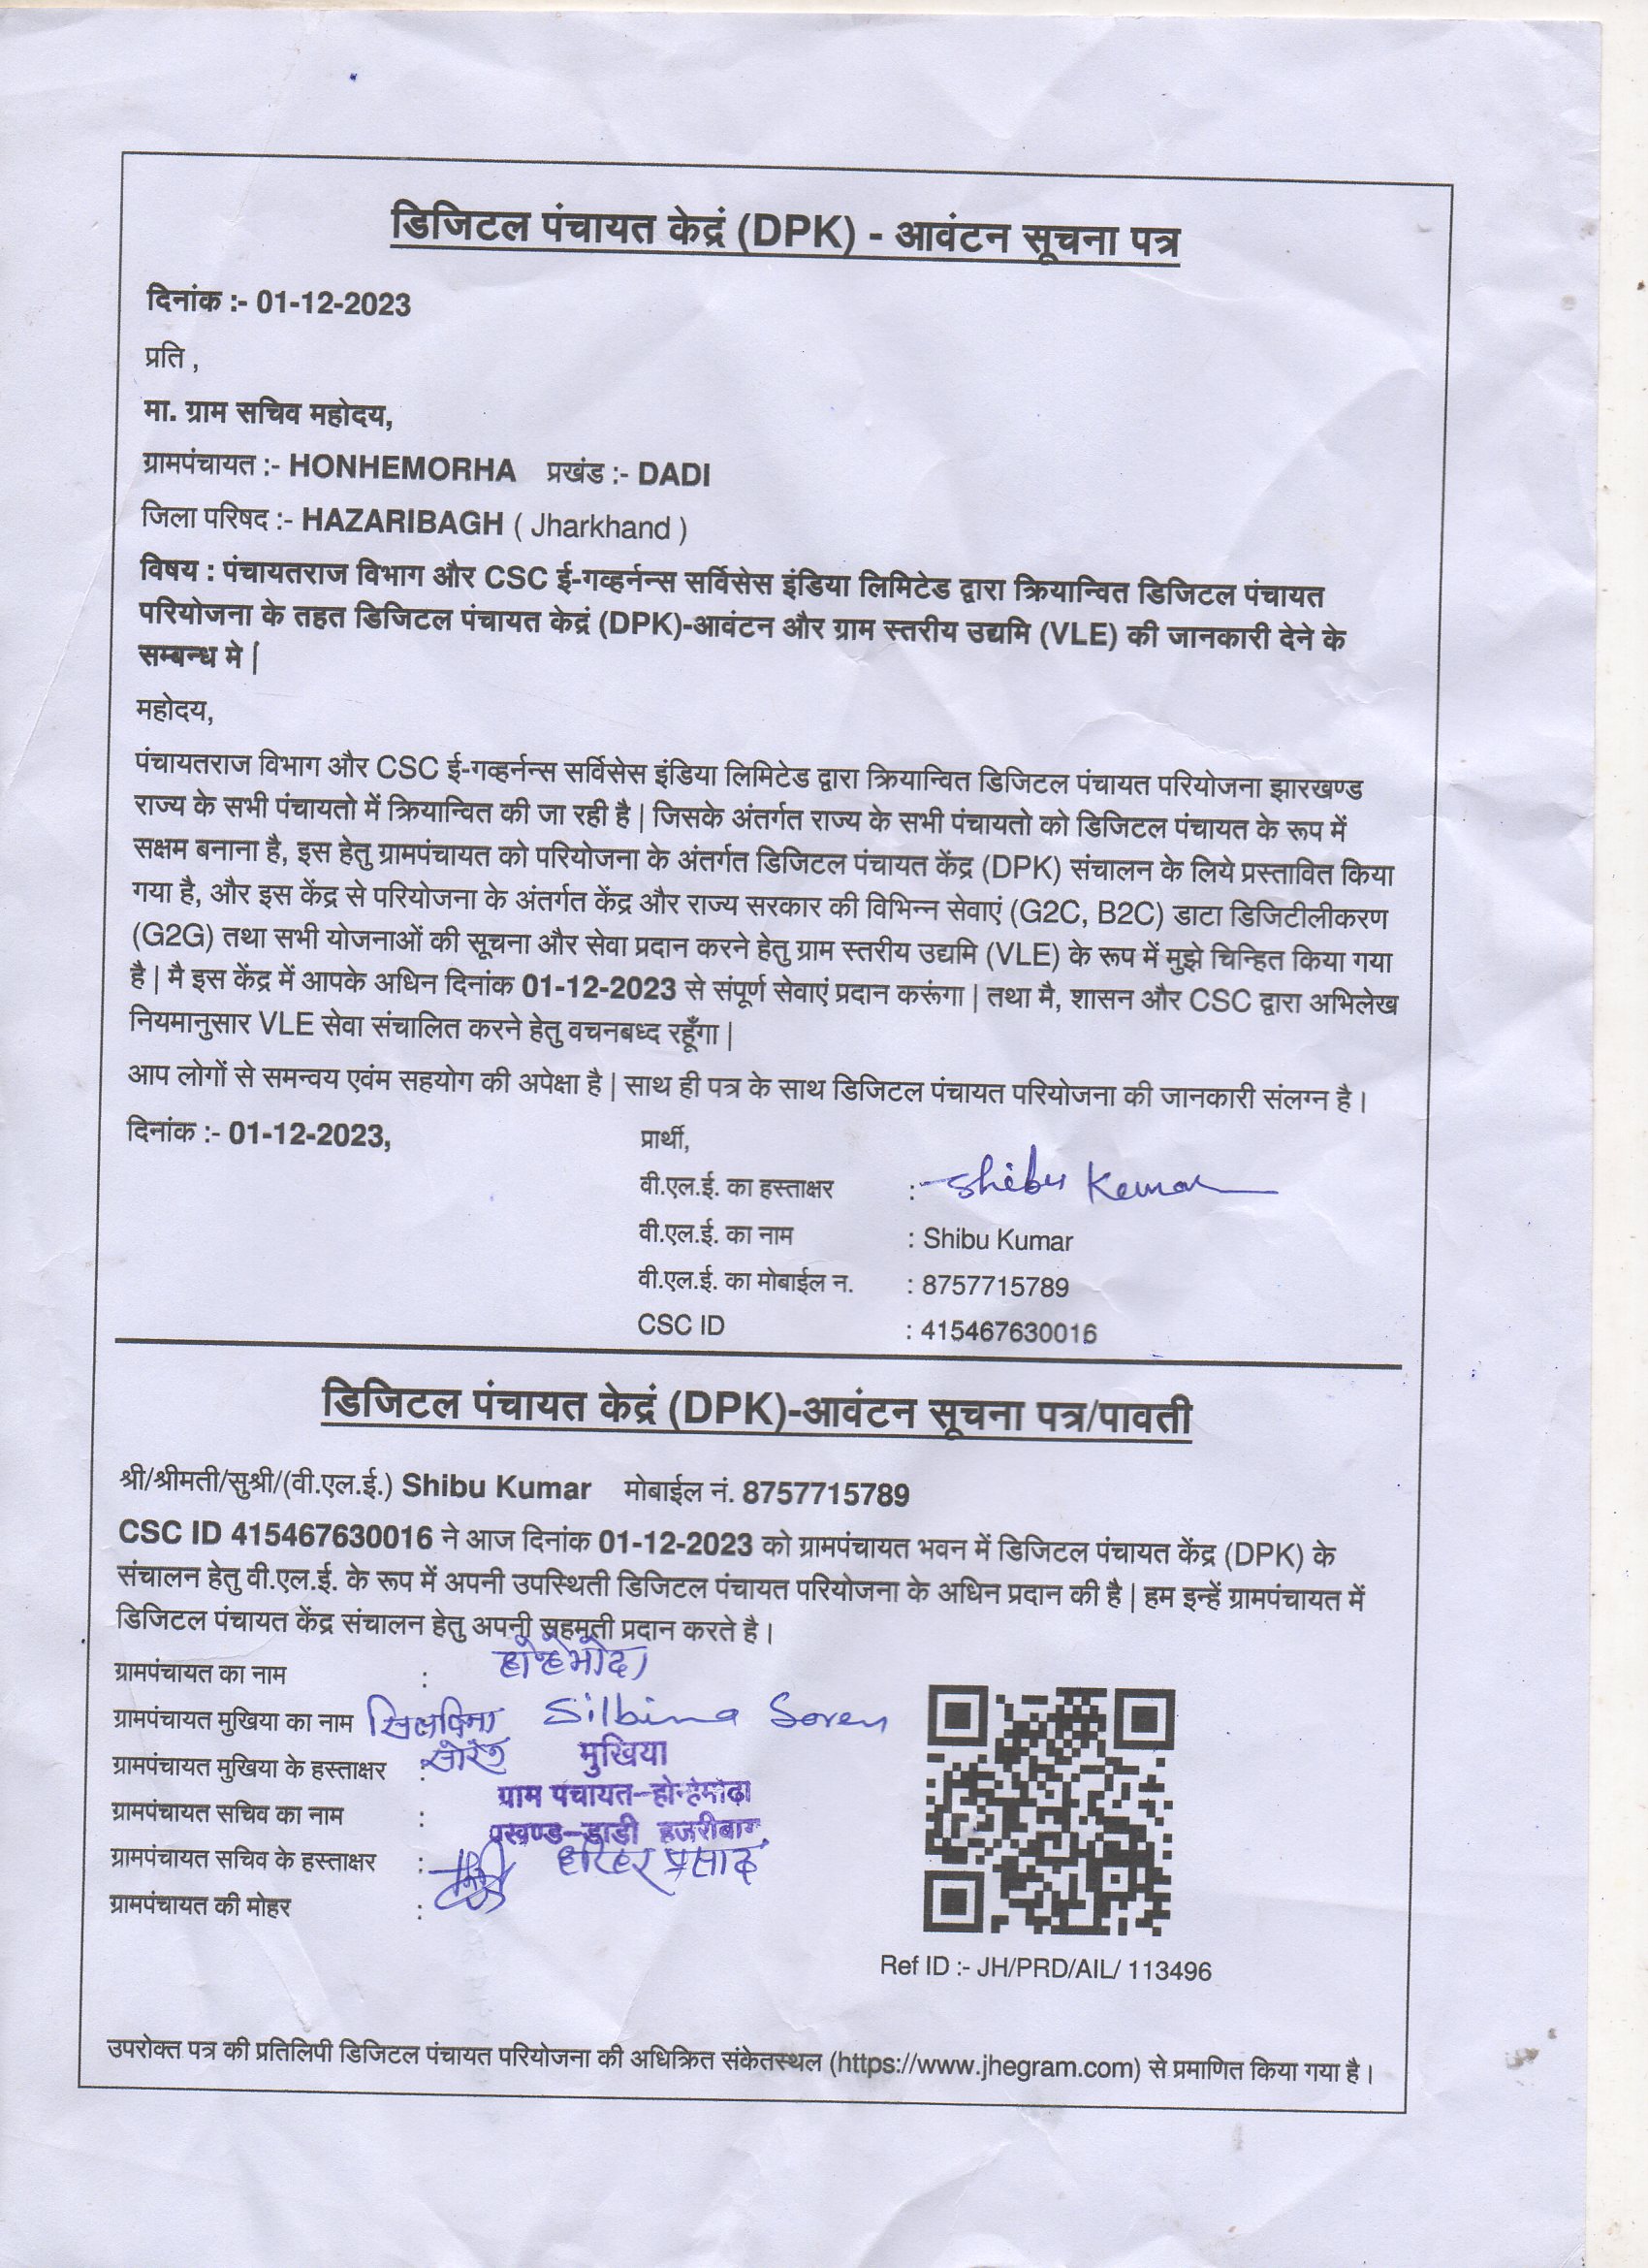 डिजिटल पंचायत केद्रं (DPK) - आवंटन सूचना पत्र
दिनांक :- 01-12-2023
प्रति ,
मा. ग्राम सचिव महोदय,
ग्रामपंचायत :- HONHEMORHA प्रखंड :- DADI
जिला परिषद :- HAZARIBAGH ( Jharkhand )
विषय : पंचायतराज विभाग और CSC ई-गव्हर्नन्स सर्विसेस इंडिया लिमिटेड द्वारा क्रियान्वित डिजिटल पंचायत
परियोजना के तहत डिजिटल पंचायत केद्रं (DPK)-आवंटन और ग्राम स्तरीय उद्यमि (VLE) की जानकारी देने के
सम्बन्ध मे |
महोदय,
पंचायतराज विभाग और CSC ई-गव्हर्नन्स सर्विसेस इंडिया लिमिटेड द्वारा क्रियान्वित डिजिटल पंचायत परियोजना झारखण्ड
राज्य के सभी पंचायतो में क्रियान्वित की जा रही है | जिसके अंतर्गत राज्य के सभी पंचायतो को डिजिटल पंचायत के रूप में
सक्षम बनाना है, इस हेतु ग्रामपंचायत को परियोजना के अंतर्गत डिजिटल पंचायत केंद्र (DPK) संचालन के लिये प्रस्तावित किया
गया है, और इस केंद्र से परियोजना के अंतर्गत केंद्र और राज्य सरकार की विभिन्न सेवाएं (G2C, B2C) डाटा डिजिटीलीकरण
(G2G) तथा सभी योजनाओं की सूचना और सेवा प्रदान करने हेतु ग्राम स्तरीय उद्यमि (VLE) के रूप में मुझे चिन्हित किया गया
है | मै इस केंद्र में आपके अधिन दिनांक 01-12-2023 से संपूर्ण सेवाएं प्रदान करूंगा | तथा मै, शासन और CSC द्वारा अभिलेख
नियमानुसार VLE सेवा संचालित करने हेतु वचनबध्द रहूँगा |
आप लोगों से समन्वय एवंम सहयोग की अपेक्षा है | साथ ही पत्र के साथ डिजिटल पंचायत परियोजना की जानकारी संलग्न है।
दिनांक :- 01-12-2023, प्रार्थी,
वी.एल.ई. का हस्ताक्षर : Shibu Kumar
वी.एल.ई. का नाम : Shibu Kumar
वी.एल.ई. का मोबाईल न. : 8757715789
CSC ID : 415467630016
डिजिटल पंचायत केद्रं (DPK)-आवंटन सूचना पत्र/पावती
श्री/श्रीमती/सुश्री/(वी.एल.ई.) Shibu Kumar मोबाईल नं. 8757715789
CSC ID 415467630016 ने आज दिनांक 01-12-2023 को ग्रामपंचायत भवन में डिजिटल पंचायत केंद्र (DPK) के
संचालन हेतु वी.एल.ई. के रूप में अपनी उपस्थिती डिजिटल पंचायत परियोजना के अधिन प्रदान की है | हम इन्हें ग्रामपंचायत में
डिजिटल पंचायत केंद्र संचालन हेतु अपनी सहमती प्रदान करते है।
ग्रामपंचायत का नाम :
ग्रामपंचायत मुखिया का नाम सिलबिना Silbina Soren
सोरेन मुखिया
ग्रामपंचायत मुखिया के हस्ताक्षर :
ग्राम पंचायत-होन्हेमोढ़ा
ग्रामपंचायत सचिव का नाम :
प्रखण्ड-डाडी हजारीबाग
ग्रामपंचायत सचिव के हस्ताक्षर : हरिहर प्रसाद
ग्रामपंचायत की मोहर :
Ref ID :- JH/PRD/AIL/ 113496
उपरोक्त पत्र की प्रतिलिपी डिजिटल पंचायत परियोजना की अधिक्रित संकेतस्थल (https://www.jhegram.com) से प्रमाणित किया गया है।